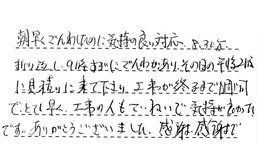 朝早くでんわしたのに気持の良い対応 8:35分
折り返し9時まえにでんわがあり、その日の午后2時
に見積りに来て下さり、工事が終るまで1週間
でとても早く、工事の人もていねいで気持が良かった
です。ありがとうございました。感謝、感謝です